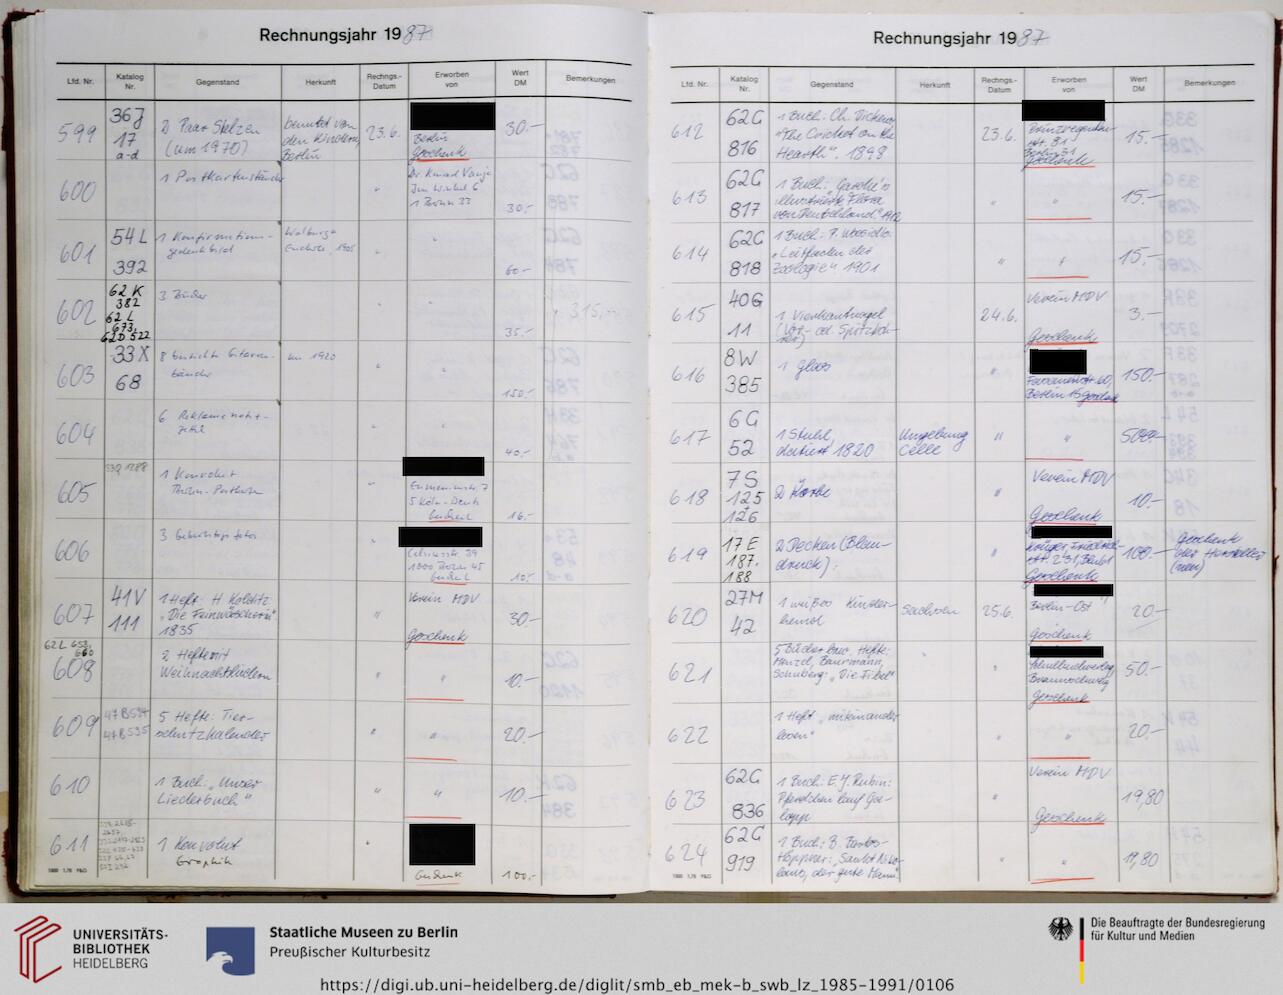 Rechnungsjahr 1987
Lfd. Nr. Katalog Nr. Gegenstand Herkunft Rechngs.-Datum Erworben von Wert DM Bemerkungen
599 36J 17 a-d 2 Paar Stelzen (um 1970) benutzt von den Kindern, Berlin 23.6. Berlin Geschenk 30.-
600 1 Postkartenständer " Dr. Konrad Vanja Im Winkel 6 1 Berlin 33 30.-
601 54L 392 1 Konfirmations-gedenkbild " " 60.-
602 62K 382 62L 673, 62D 522 3 " " 35.- 315,-
603 33X 68 8 bänder um 1920 " " 150.-
604 6 " " 40.-
605 33Q 1288 1 Konvolut " 5 Köln-Deutz 16.-
606 3 Geburtstags " 39 1000 Berlin 45 10.-
607 41V 111 1 Heft: H. Kolditz "Die Feinwäscherin" 1835 " Verein MDV Geschenk 30.-
608 62L 659, 660 2 Hefte mit Weihnachtsliedern " " 10.-
609 47B594 47B595 5 Hefte: Tier-schutzkalender " " 20.-
610 1 Buch: "Unser Liederbuch" " " 10.-
611 1 Konvolut Graphik " 100.-
1000 1.78 P&O
Rechnungsjahr 1987
Lfd. Nr. Katalog Nr. Gegenstand Herkunft Rechngs.-Datum Erworben von Wert DM Bemerkungen
612 62G 816 1 Buch: Ch. Dickens "The Cricket on the Hearth". 1898 23.6. Prinzregenten-str. 81 Berlin 31 Geschenk 15.-
613 62G 817 1 Buch: Garcke's illustrierte Flora von Deutschland" 1912 " " 15.-
614 62G 818 1 Buch: P. Wossidlo "Leitfaden der Zoologie" 1901 " " 15.-
615 40G 11 1 Vierkantnagel 24.6. Verein MDV Geschenk 3.-
616 8W 385 1 Glas " Fasanenstr. 60, Berlin 15 Geschenk 150.-
617 6G 52 1 Stuhl, datiert 1820 Umgebung Celle " " 500.-
618 7S 125 + 126 2 Körbe " Verein MDV Geschenk 10.-
619 17E 187. 188 2 Decken (Blau-druck) " Geschenk 100.- Geschenk der Hersteller (neu)
620 27M 42 1 weißes Kinder-hemd Sachsen 25.6. Berlin-Ost Geschenk 20.-
621 5 Bücher bzw. Hefte: " Schulbuchverlag Braunschweig Geschenk 50.-
622 1 Heft "miteinander lesen" " " 20.-
623 62G 836 1 Buch: E.J. Rubin: Pferdchen lauf Galopp " Verein MDV Geschenk 19,80
624 62G 919 1 Buch: B. Bartos-Höppner: "Sankt Nikolaus, der gute Mann" " " 19,80
1000 1.78 P&O
UNIVERSITÄTS-
BIBLIOTHEK
HEIDELBERG
Staatliche Museen zu Berlin
Preußischer Kulturbesitz
Die Beauftragte der Bundesregierung
für Kultur und Medien
https://digi.ub.uni-heidelberg.de/diglit/smb_eb_mek-b_swb_lz_1985-1991/0106